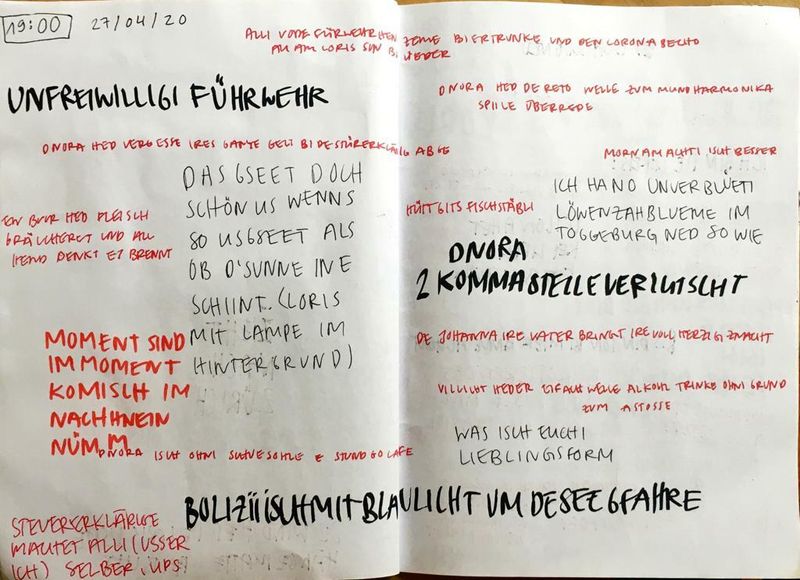 19:00
27/04/20
ALLI VODE FÜRWEHR HEN ZEME BIERTRUNKE UND DEN CORONA BECHO
AM AM LORIS SIN BRÜEDER
UNFREIWILLIGI FÜHRWEHR
DNORA HED VERGESSE IRES GANZE GELT BI DE STÜRERKLÄRIG ABGE
DAS GSEET DOCH
SCHÖN US WENNS
SO USGSEET ALS
OB D'SUNNE INE
SCHIINT. (LORIS
MIT LAMPE IM
HINTERGRUND)
EN BUUR HED FLEISCH
GRÄUCHERET UND ALL
HEND DENKT EZ BRENNT
MOMENT SIND
IM MOMENT
KOMISCH IM
NACHHNEIN
NÜM.M
DNORA ISCH OHNI SCHUESOHLE E STUND GO LAFE
STEUERERKLÄRIGE
MACHET ALLI (USSER
ICH) SELBER, ÜPS
DNORA HED DE RETO WELLE ZUM MUNDHARMONIKA
SPIILE ÜBERREDE
MORN AM ACHTI ISCH BESSER
ICH HA NO UNVERBLÜETI
LÖWENZAHBLUEME IM
TOGGEBURG NED SO WIE
HÜTT GITS FISCHSTÄBLI
DNORA
2 KOMMASTELLE VERRUTSCHT
DE JOHANNA IRE VATER BRINGT IRE VOLL HERZIG ZNACHT
VILLICHT HED ER EIFACH WELLE ALKOHL TRINKE OHNI GRUND
ZUM ASTOSSE
WAS ISCH EUCHI
LIEBLINGSFORM
BOLIZII ISCH MIT BLAULICHT UM DE SEE GFAHRE